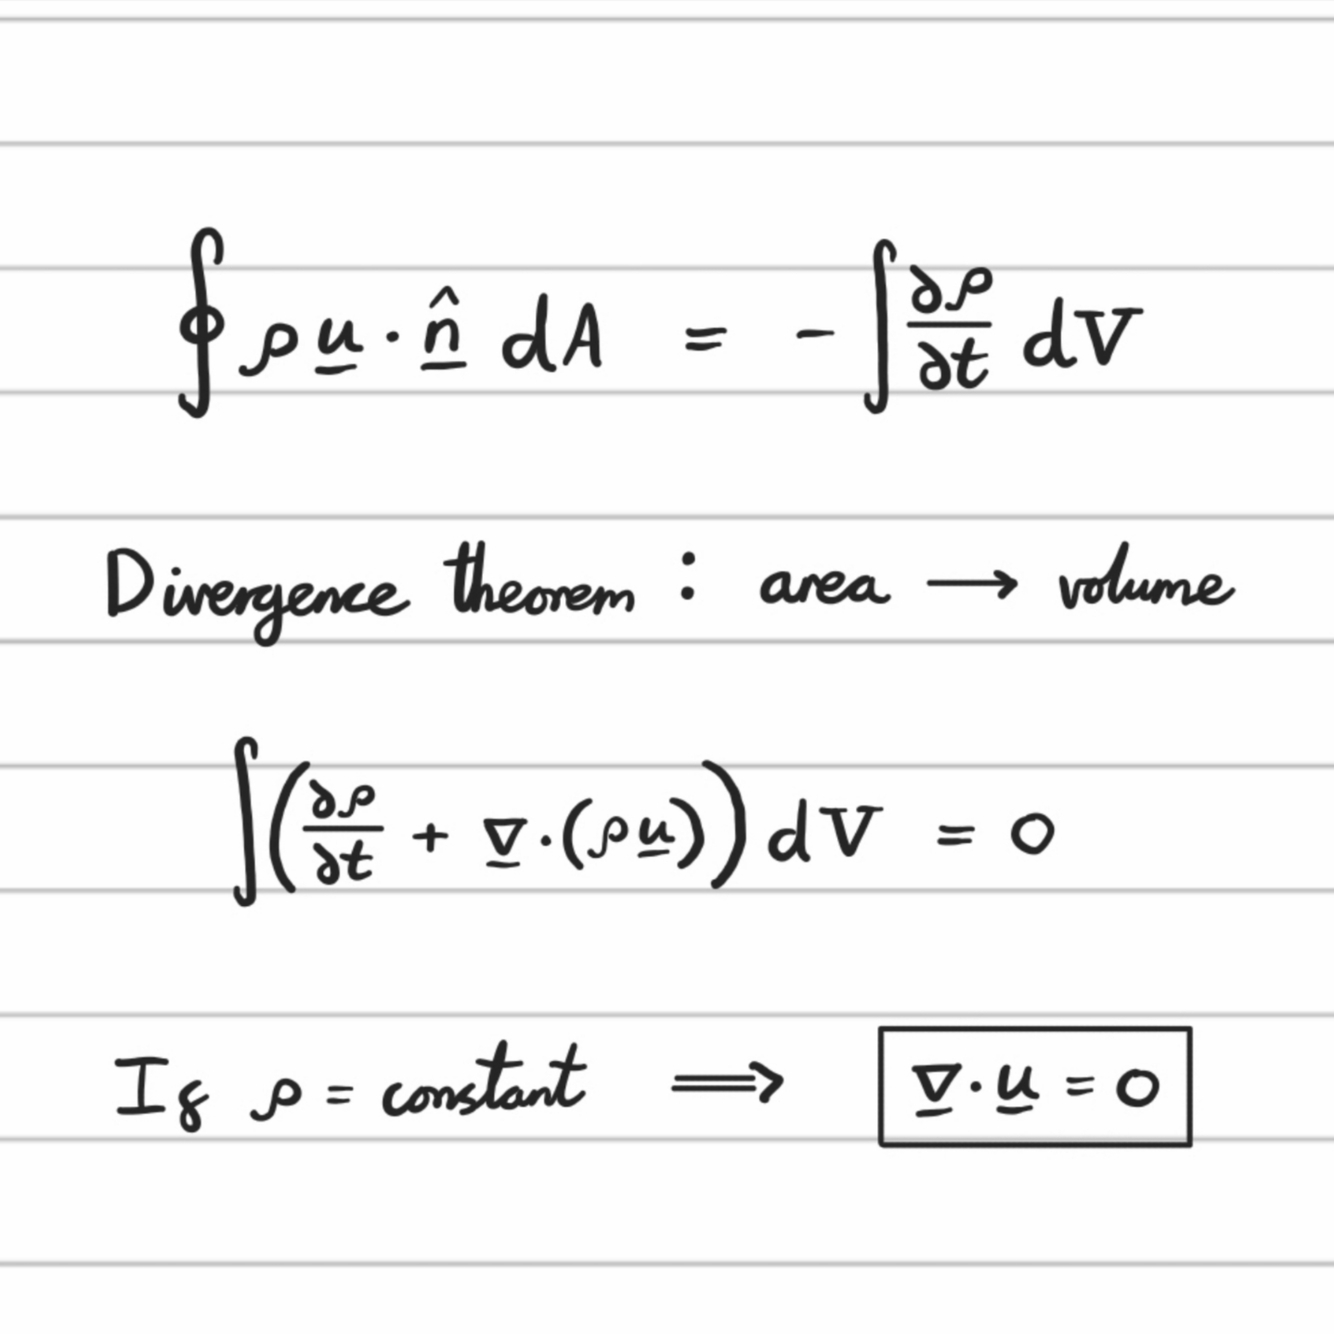 ∮ ρ u̲ · n̲̂ dA = - ∫ ∂ρ/∂t dV
Divergence theorem : area ⟶ volume
∫ (∂ρ/∂t + ∇̲ · (ρ u̲)) dV = 0
If ρ = constant ⟹ ∇̲ · u̲ = 0